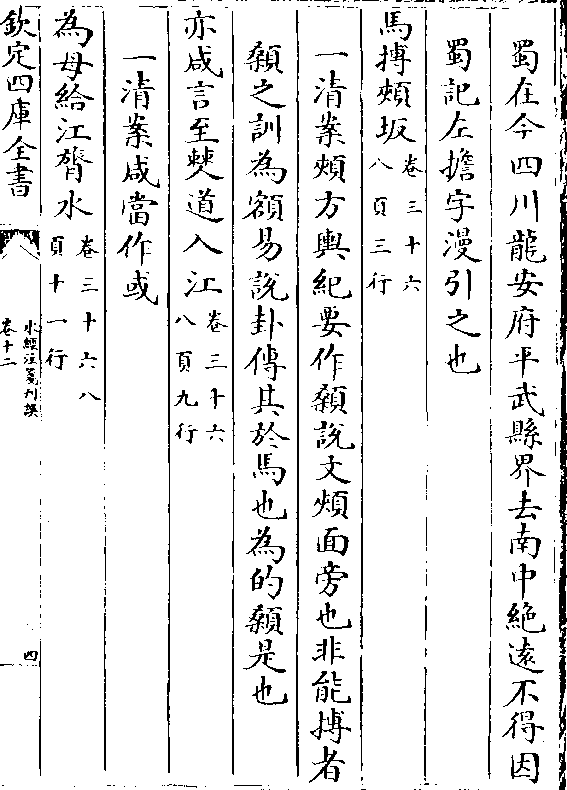 蜀在今四川龍安府平武縣界去南中絶逺不得因
蜀記左擔字漫引之也
馬搏頰坂卷三十六八頁三行
一清案頰方輿紀要作顙說文頰面旁也非能搏者
顙之訓為額易說卦傳其於馬也為的顙是也
亦咸言至僰道入江卷三十六八頁九行
一清案咸當作或
為母給江膂水卷三十六八頁十一行
欽定四庫全書
水經注箋刋誤
卷十二
四